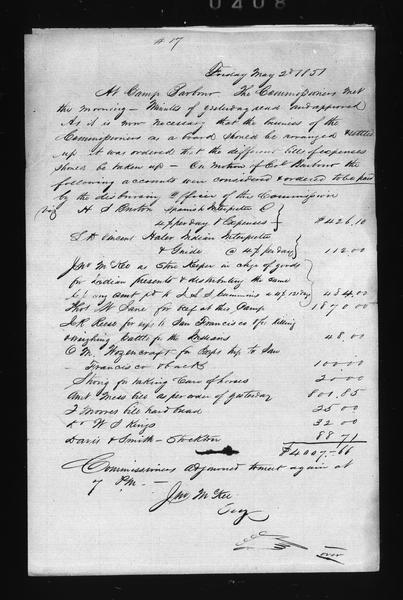 0408
# 17
Friday May 2d 1851
At Camp Barbour The Commissioners met
this morning — Minutes of yesterday read and approved
As it is now necessary that the business of the
Commissioners as a board should be arranged & settled
up it was ordered that the different bills of expenses
should be taken up — On motion of Col Barbour the
following accounts were considered & ordered to be paid
by the disbursing Officer of the Commission
Viz H S Burton Spanish Interpreter @
4 $ per day & Expenses $ 426.10
Vincent Haler Indian Interpreter
& Guide @ 4 $ per day 112.00
Jno McKee as Store Keeper in chge of goods
for Indian presents & distributing the same
484.00
Thos W Lane for Beef at this Camp 1870.00
J R Reese for killing
& weighing Cattle for the Indians 48.00
O M. Wozencraft for Exps trip to San
Francisco & back 100.00
for taking Care of horses 20.00
Amt Mess bill as per order of yesterday 801.85
bill hard bread 25.00
Do W J Kings 32.00
Davis & Smith — Stockton 88.71
$4007.66
Commissioners adjourned to meet again at
7 P.M. —
Jno McKee
Secy
over